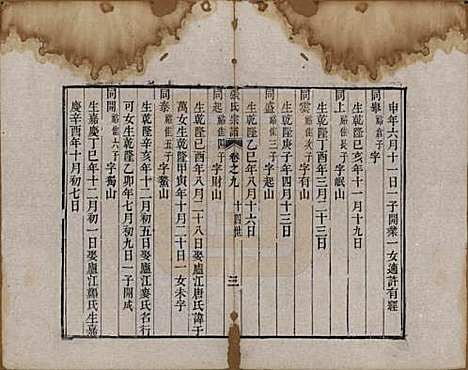 申年六月十一日一子開業一女適許有經
同舉 裕億子 字
生乾隆辛亥年十一月十九日
同上 裕佳長子 字岷山
生乾隆丁酉年三月二十三日
同雲 裕佳次子 字有山
生乾隆庚子年四月十三日
同盛 裕佳三子 字起山
生乾隆乙巳年八月十六日
張氏宗譜 卷之九 十四世 三
同起 裕佳四子 字財山
生乾隆己酉年八月二十八日娶廬江唐氏諱于
萬女生乾隆甲寅年十月二十日一女未字
同泰 裕佳五子 字鰲山
生乾隆辛亥年十一月初五日娶廬江麥氏名行
可女生乾隆乙卯年七月初九日一子開成
同開 裕佳六子 字獨山
生嘉慶丁巳年十二月初一日娶廬江鄭氏生嘉
慶辛酉年十月初七日